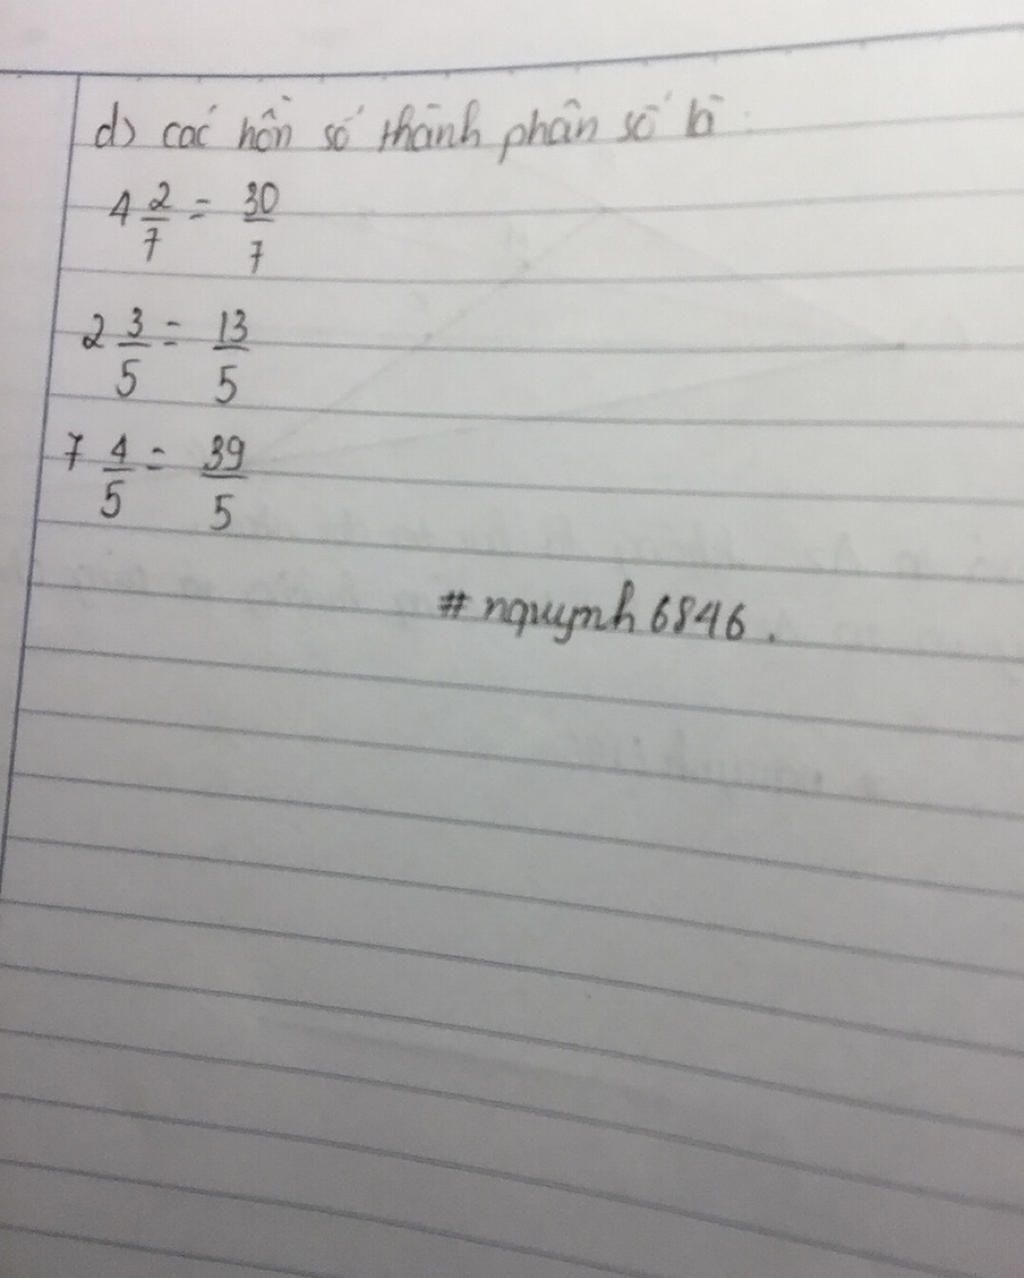 d) các hỗn số thành phân số là:
4 2/7 = 30/7
2 3/5 = 13/5
7 4/5 = 39/5
# nquynh6846.